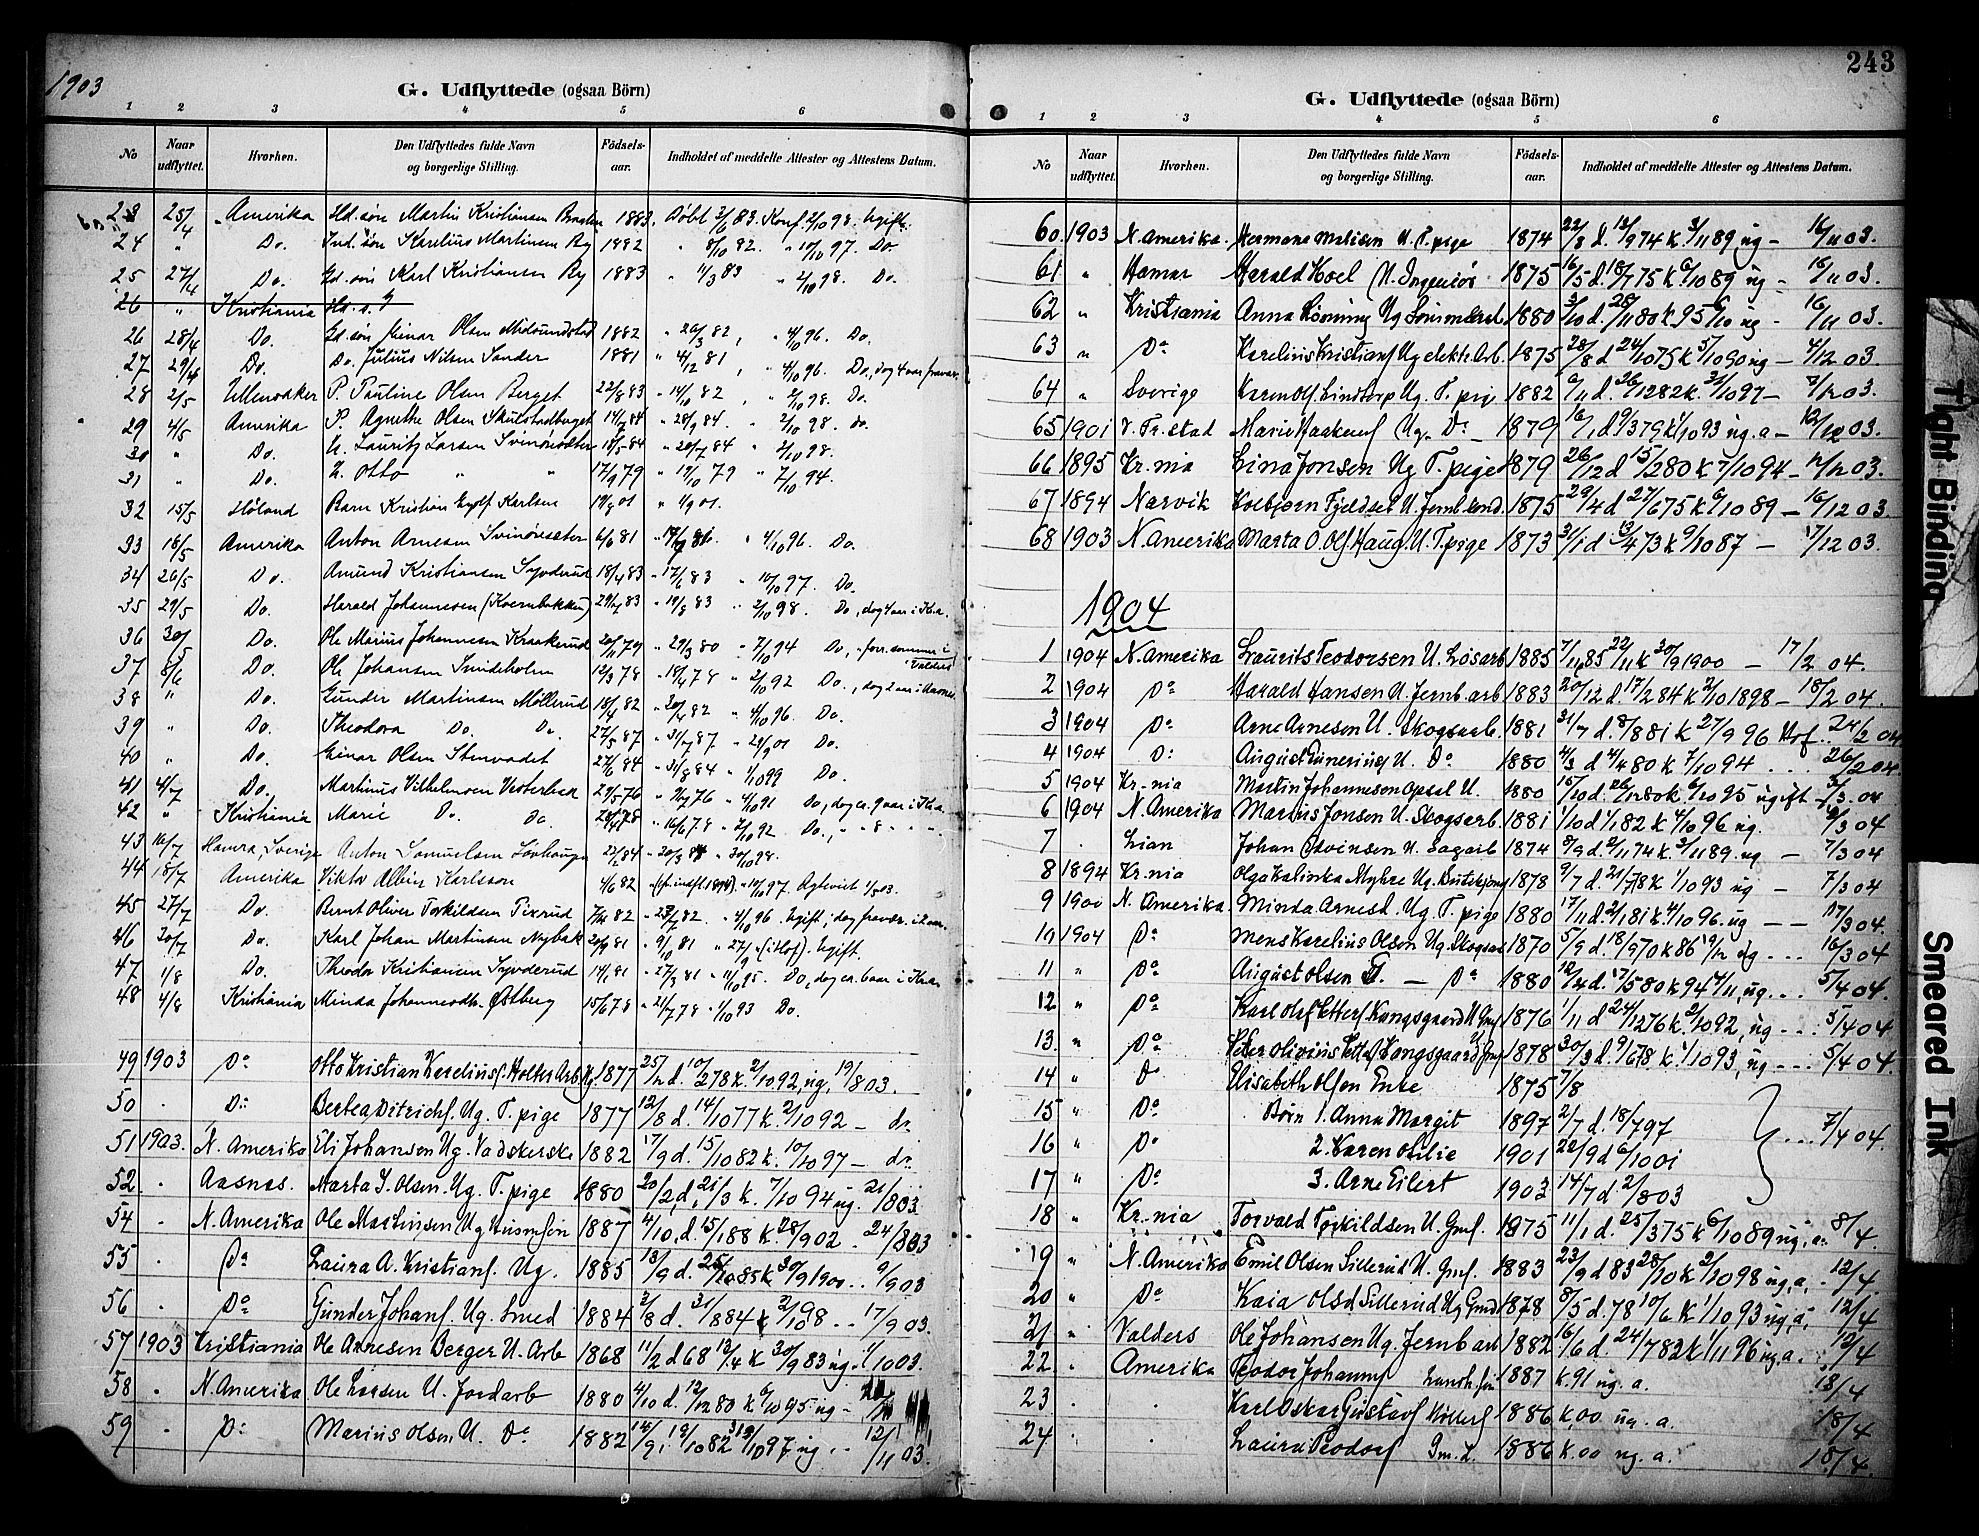 1903
G. Udflyttede (ogsaa Börn)
1 2 3 4 5 6
No Naar udflyttet. Hvorhen. Den Udflyttedes fulde Navn og borgerlige Stilling. Födsels-aar. Indholdet af meddelte Attester og Attestens Datum.
23 25/4 Amerika Martin Kristiansen 1883. Döbt 3/6 83. Konf. 2/10 98. Ugift.
24 " Do. Karelius Martinsen Ry 1882 " 8/10 82. " 10/10 97. Do.
25 27/4 Do. Karl Kristiansen Ry 1883 " 11/3 83 " 2/10 98. Do.
26 " Kristiania
26 28/4 Do. Einar Olsen Midsundstad 1882 " 26/3 82, " 4/10 96. Do.
27 29/4 Do. Do. Julius Nilsen Sander 1881 " 4/12 81, " 4/10 96. Do., dog 4 aar fravær.
28 2/5 Ullensaker P. Pauline Olsen Berget 22/8 83 " 14/10 82, " 2/10 98. Do.
29 4/5 Amerika P. Agnethe Olsen Skulstadberget 14/7 84 " 28/9 84. " 2/10 98. do.
30 " Do. U. Lauritz Larsen Svinöresæter 18/5 84 " 20/7 84 " 2/10 98.
31 " Do. U. Otto " " 17/9 79 " 17/10 79 " 7/10 94.
32 15/5 Höland Barn Kristian Karlsen 19/8 01 " 1/9 01.
33 18/5 Amerika Anton Arnesen Svinöresæter 6/6 81 " 4/10 96. Do.
34 26/5 Do. Amund Kristiansen Syverud 18/4 83 " 17/6 83 " 10/10 97. Do.
35 29/5 Do. Harald Johannesen (Kvernbakken) 29/7 83 " 19/8 83 " 2/10 98 Do., dog 4 aar i K.a.
36 30/5 Do. Ole Marius Johannesen Kraakerud 20/11 79 " 29/3 80 " 7/10 94 Do., forr. sommer i Valders
37 8/6 Do. Ole Johansen Sundeholm 12/3 78 " 18/4 78 " 2/10 92 Do., dog 2 aar i Aasnes.
38 " Do. Gunder Martinsen Möllerud 18/4 82 " 30/4 82 " 4/10 96. Do.
39 " Do. Theodora Do. Do. 27/5 87 " 31/7 87 " 29/9 01 Do.
40 " Do. Einar Olsen Stenvadet 27/6 84 " 31/8 84 " 1/10 99 Do.
41 4/7 Do. Martinus Vilhelmsen Vesterbek 29/5 76 " 76 " 4/10 91 Do., dog ca. 9 aar i K.a.
42 " Kristiania Marie Do. Do. 28/4 78 " 16/6 78 " 2/10 92 Do., " " 8 " " "
43 16/7 Hamra, Sverige Anton Samuelsen Lövhaugen 22/1 84 " 20/3 84 " 30/10 98.
44 18/7 Amerika Viktor Albin Karlsson 4/6 82 " 10/10 97. Ægtevist
45 27/7 Do. Bernt Oliver Torkildsen Pixrud 7/12 82 " 82 " 4/10 96. Ugift, dog fravær. i 2 aar.
46 30/7 Do. Karl Johan Martinsen Nybak 20/9 81 " 9/10 81 " 27/9 (i Hof). Ugift.
47 1/8 Do. Theodor Kristiansen Syverud 14/1 81 " 27/3 81 " 11/10 95. Do., dog ca. 6 aar i K.a.
48 4/8 Kristiania Minda Johannesdtr. Östberg 15/6 78 " 21/7 78 " 1/10 93 Do.
49 1903 Do Otto Kristian Kareliuss. Holter Arb. Ug. 1877 25/12 d. 10/2 78 k. 2/10 92, ug, 19/8 03.
50 . Do Bertea Ditrichs. Ug. T. pige 1877 12/8 d. 14/10 77 k. 2/10 92 — do.
51 1903. N. Amerika Eli Johansen Ug. Vadskerske 1882 17/9 d. 15/10 82 k. 10/10 97 — do.
52 . Aasnes. Marta S. Olsen. Ug. T. pige 1880 20/2, d. 21/3 k. 7/10 94 ug. 21/8 03.
54 . N. Amerika Ole Martinsen Ug Husm.sön 1887 4/10, d. 15/1 88 k 28/9 02 . 24/8 03
55 . Do Laura A. Kristians. Ug. 1885 13/9 d. 25/10 85 k 30/9 1900 .. 9/9 03
56 . Do Gunder Johans. Ug. Smed 1884 2/8 d. 31/8 84 k 2/10 98 .. 17/9 03.
57 1903 Kristiania Ole Arnesen Berger U. Arb 1868 11/2 d 68 12/4 k 30/9 83 ug. 1/10 03.
58 . N. Amerika Ole Larsen U. Jordarb 1880 4/10 d. 12/12 80 k 6/10 95 ug -
59 . Do Marius Olsen U. Do 1882 14/9, 19/10 82 3/10 97 ug .. 12/11 03.
243
G. Udflyttede (ogsaa Börn)
1 2 3 4 5 6
No Naar udflyttet. Hvorhen. Den Udflyttedes fulde Navn og borgerlige Stilling. Födsels-aar. Indholdet af meddelte Attester og Attestens Datum.
60. 1903 N. Amerika. Hermane Melisen U. T. pige 1874 22/8 d. 13/9 74 k. 3/11 89 ug — 16/11 03.
61 " Hamar Harald Hoel U. Ingeniör 1875 16/5 d. 18/7 75 k 6/10 89 ug - 16/11 03.
62 " Kristiania Anna Lönning Ug 1880 3/10 d. 28/11 80 k 95 6/10 ug - 16/11 03.
63 " Do Karelius Kristians Ug elektr. Arb. 1875 28/8 d 24/10 75 k 5/10 90 ug — 4/12 03.
64 " Sverige Karen Ols. Lindtorp Ug. T. pig 1882 6/11 d. 26/12 82 k. 3/10 97 — 7/12 03.
65 1901 v. Fr.stad Marie Haakens Ug. Do 1879 16/1 d 9/3 79 k 1/10 93 ug. a — 12/12 03.
66 1895 Kr.nia Lina Jonsen Ug T. pige 1879 26/12 d 15/2 80 k 7/10 94 — 03.
67 1894 Narvik Kolbjörn Fjeldset U. Jernb. kond. 1875 29/4 d 27/6 75 k 6/10 89 — 16/12 03.
68 1903 N. Amerika Marta O. Ols Haug U. T. pige 1873 31/1 d 13/4 73 k 9/10 87 — 17/12 03.
1904
1 1904 N. Amerika Laurits Teodorsen U. Lösarb 1885 7/11 85 22/11 k 30/9 1900 — 17/2 04.
2 1904 Do Harald Hansen U. Jernb. arb 1883 20/12 d. 17/2 84 k 2/10 1898 — 18/2 04.
3 1904 Do Arne Arnesen U. Skogsarb. 1881 31/7 d. 8/8 81 k 27/9 96 Hof .. 24/2 04
4 1904 Do August U. Do 1880 4/3 d 4/4 80 k 7/10 94 ... 26/2 04.
5 1904 Kr.nia Martin Johannesen Opsal U. 1880 15/10 d. 26/12 80 k 6/10 95 ugift 3/3. 04
6 1904 N. Amerika Marius Jonsen U. Skogsarb. 1881 1/10 d 1/1 82 k 4/10 96 ug. 3/3 04
7 . Lian Johan Evinsen U. Sagarb 1874 8/9 d. 2/11 74 k. 3/11 89. ug — 7/3 04
8 1894 Kr.nia Olga Kalinka Myhre Ug. 1878 9/7 d. 21/7 78 k 1/10 93 ug — 7/3 04
9 1900 N. Amerika. Minda Arnesd. Ug T. pige 1880 17/11 d. 2/1 81 k. 4/10 96. ug — 17/3 04.
10 1904 Do Mens Karelius Olsen Ug. Skogsar 1870 5/9 d. 18/9 70 k 86 19/12 ug ... 16/3 04
11 " Do August Olsen — Do 1880 12/4 d. 17/5 80 k 94 4/11, ug. ... 5/4 04.
12 " Do Karl Ols Etters. Kongsgaard U Gms 1876 1/11 d 24/12 76 k. 2/10 92, ug ... 5/4 04
13. " Do Peter Olivius Kongsgaard U Gms 1878 30/3 d. 9/6 78 k. 1/10 93, ug ... 5/4 04.
14 " Do Elisabeth Olsen Enke 1875 7/8
15 " Do Börn 1. Anna Margit 1897 2/7 d. 18/7 97 ... 7/4 04.
16 " Do 2. Karen Otilie 1901 22/9 d 6/10 01
17 " Do 3. Arne Eilert 1903 14/7 d. 2/8 03
18 " Kr.nia Torvald Torkildsen U. Gms. 1875 11/1 d. 25/3 75 k 6/10 89 ug, a. 8/4.
19 " N. Amerika Emil Olsen Sillerud U. Gms. 1883 23/9 d 83 28/10 k 2/10 98 ug, a, . 12/4.
20 " Do Kaia Olsd Sillerud Ug Gmd 1878 8/5 d. 78 10/6 k 1/10 93 ug, a, 12/4
21 " Valders Ole Johansen Ug. Jernb. arb 1882 16/6 d. 24/7 82 k 1/11 96 ug a. 12/4
22. " Amerika Teodor Johanns 1887 k. 91 ug. a. 18/4
23 . . Karl Oskar Gustavs 1886 k, 00 ug. a. 18/4
24 . . Laura Teodors Gm. d. 1886 k. 00 ug. a. 18/4.
Tight Binding
Smeared Ink